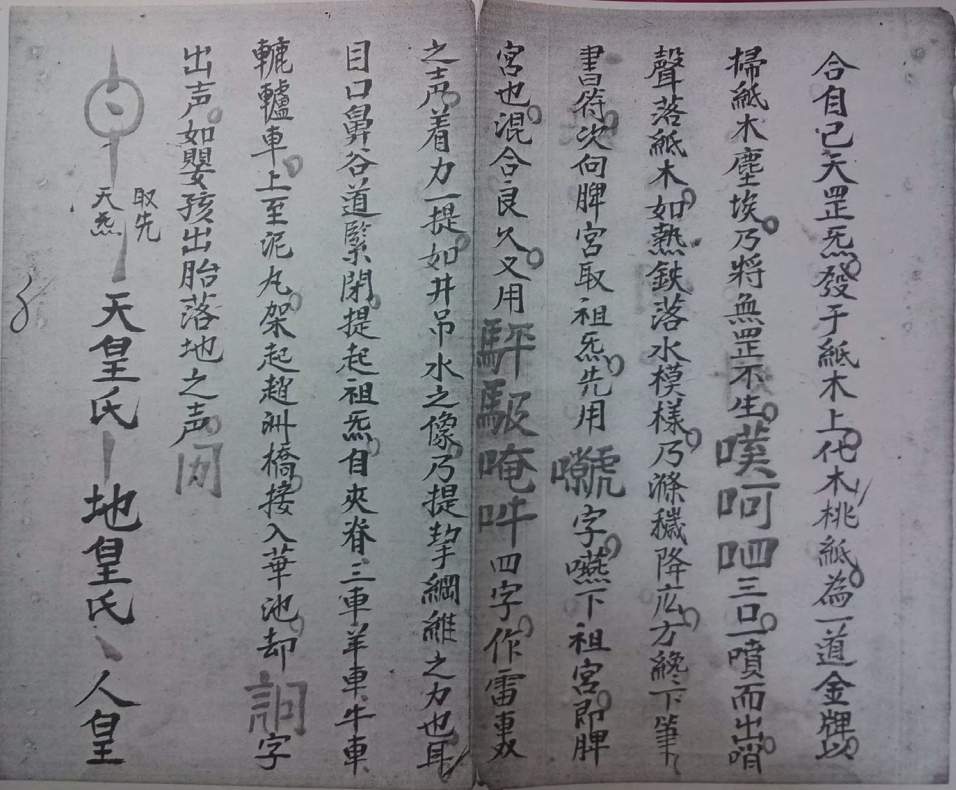 合自己天罡炁發于紙木上化木桃紙為一道金牌以
掃紙木塵埃乃將無罡不生噗呵呬三口一噴而出哨
聲落紙木如熱鉄落水模樣乃滌穢降広方終下筆
書符次向脾宮取祖炁先用字嚥下祖宮即脾
宮也混合良久又用唵吽四字作雷車
之声着力一提如井吊水之像乃提挈綱維之力也耳
目口鼻谷道緊閉提起祖炁自夾脊三車羊車牛車
轆轤車上至泥丸架起趙州橋接入華池却字
出声如嬰孩出胎落地之声
取先
天炁
天皇氏 地皇氏 人皇